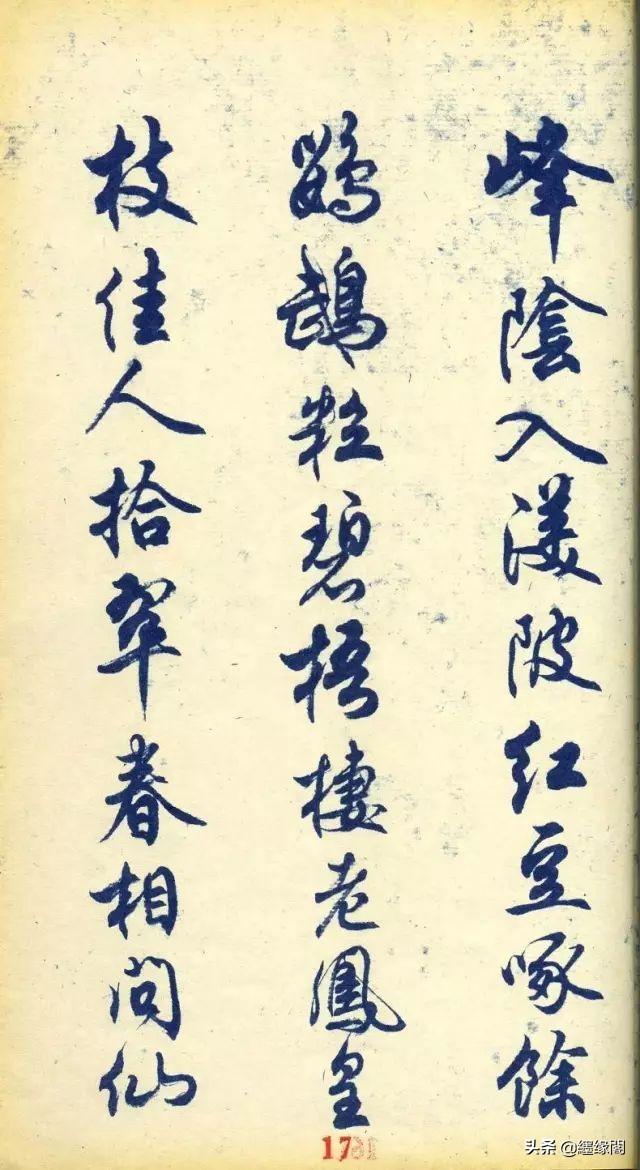 峰陰入渼陂紅豆啄餘
鸚鵡粒碧梧棲老鳳皇
枝佳人拾翠春相問仙
17
头条 @纒缘閣